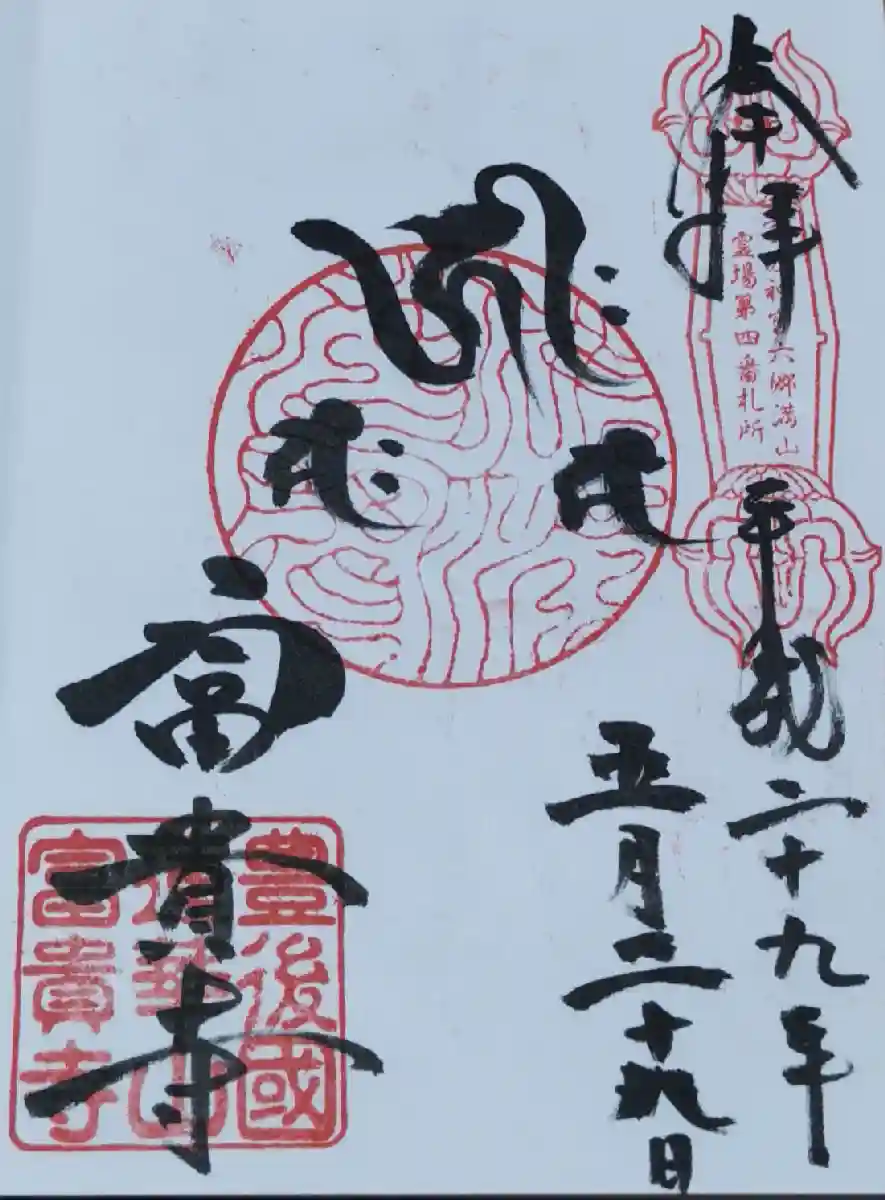 奉拝
神宮六郷満山
霊場第四番札所
平成二十九年
五月二十九日
富貴寺
豊後國
蓮華山
富貴寺